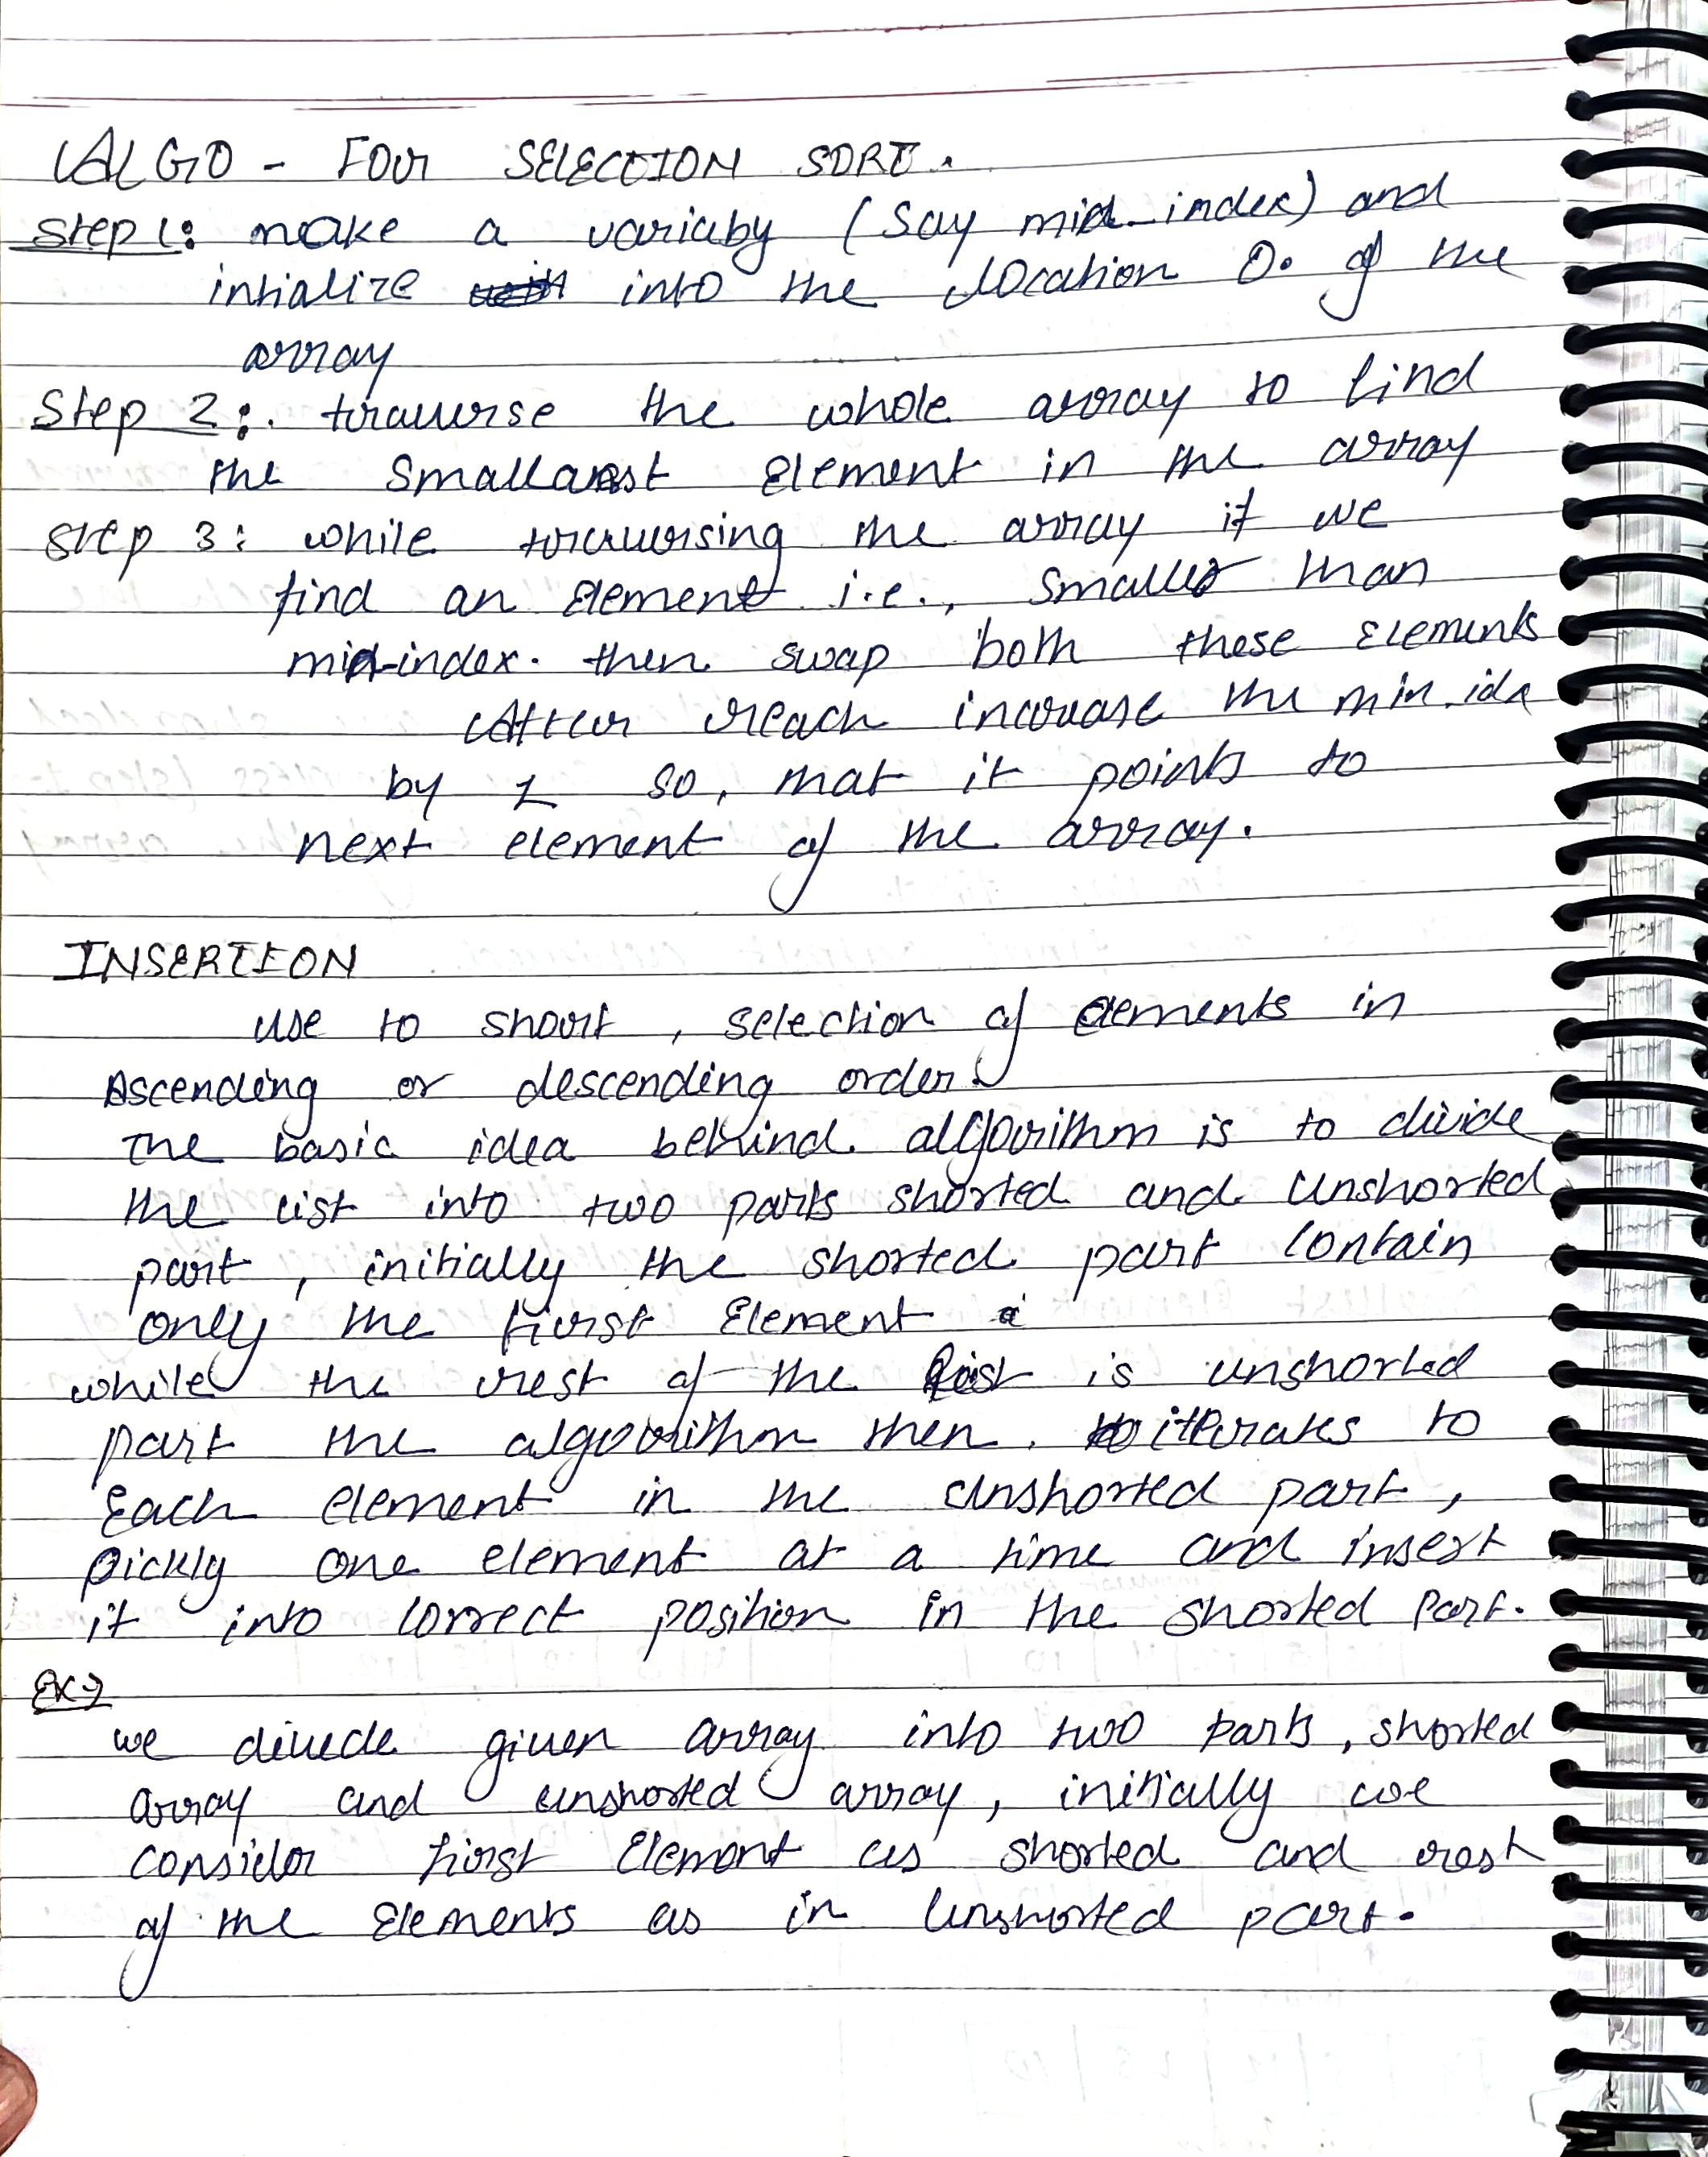 ALGO - FOR SELECTION SORT.
Step 1: make a variaby (Say mid-index) and
intialize into the location 0. of the
array
Step 2: traverse the whole array to find
the Smallarest Element in the array
Step 3: while traversing the array if we
find an Element i.e., Smaller than
mid-index. then swap both these Elements
After reach increase the min.idx
by 1 so, that it points to
next element of the array.
INSERTION
Use to short, selection of elements in
Ascending or descending order.
The basic idea behind. algorithm is to divide
the list into two parts shorted and Unshorted
part, initially the shorted part contain
only the first Element
while the rest of the list is unshorted
part the algorithm then. iterates to
Each element in the unshorted part,
pickly one element at a time and insert
it into correct position in the shorted part.
Ex→
we divede given array into two parts, shorted
array and unshorted array, initially we
consider first Element as shorted and rest
of the Elements as in Unshorted part.